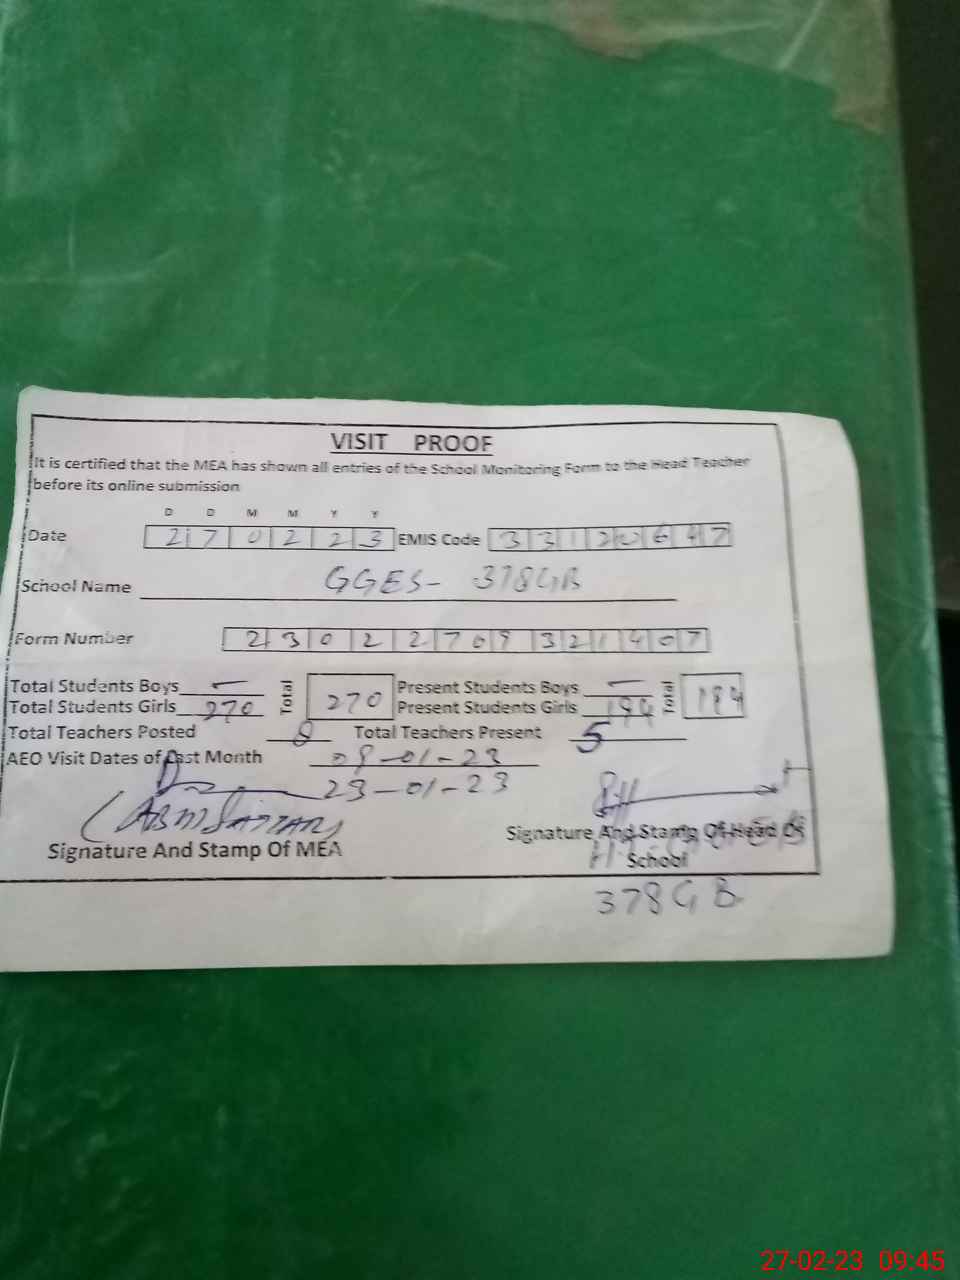 VISIT PROOF
It is certified that the MEA has shown all entries of the School Monitoring Form to the Head Teacher
before its online submission
D D M M Y Y
Date 270223 EMIS Code 33120647
School Name GGES- 378GB
Form Number 23022709321407
Total Students Boys — Total 270 Present Students Boys — Total
Total Students Girls 270 Present Students Girls
Total Teachers Posted Total Teachers Present 5
AEO Visit Dates of Last Month 09-01-23
23-01-23
Signature And Stamp Of MEA
Signature And Stamp Of Head Of
School
378GB
27-02-23 09:45